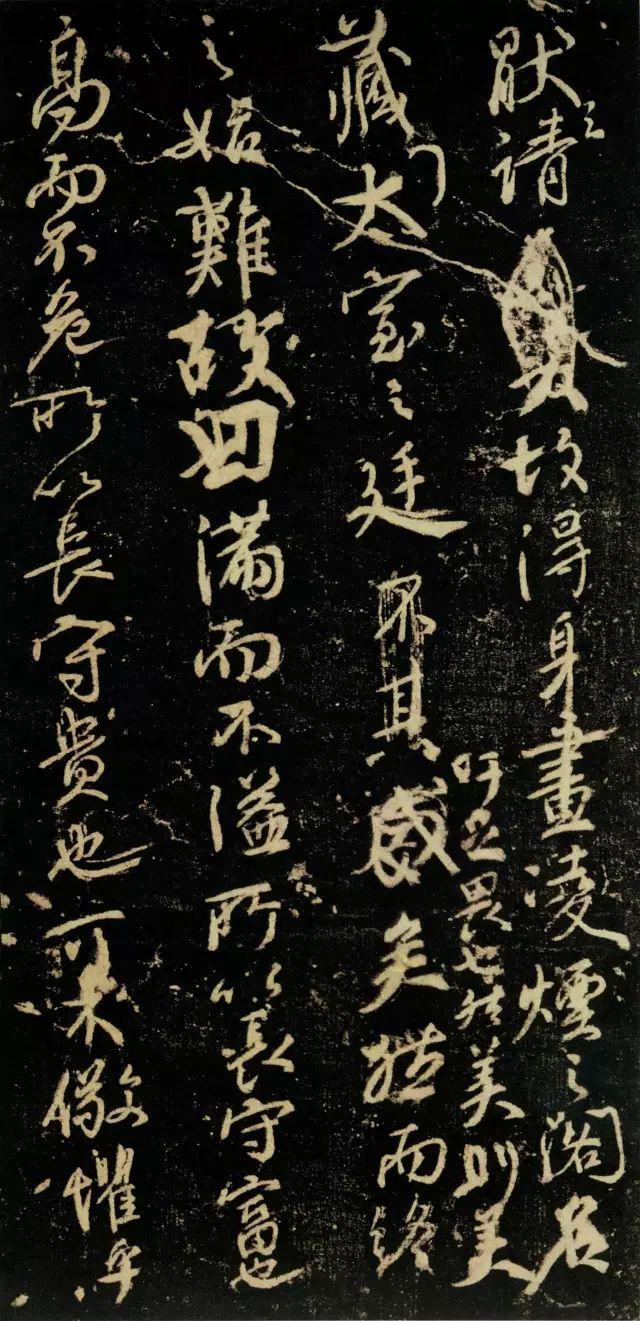 猒之請故得身畫淩煙之閣名
吁足畏也然美則美
藏太室之廷不其盛矣然而終
之始難故曰滿而不溢所以長守富也
高而不危所以長守貴也可不儆懼乎